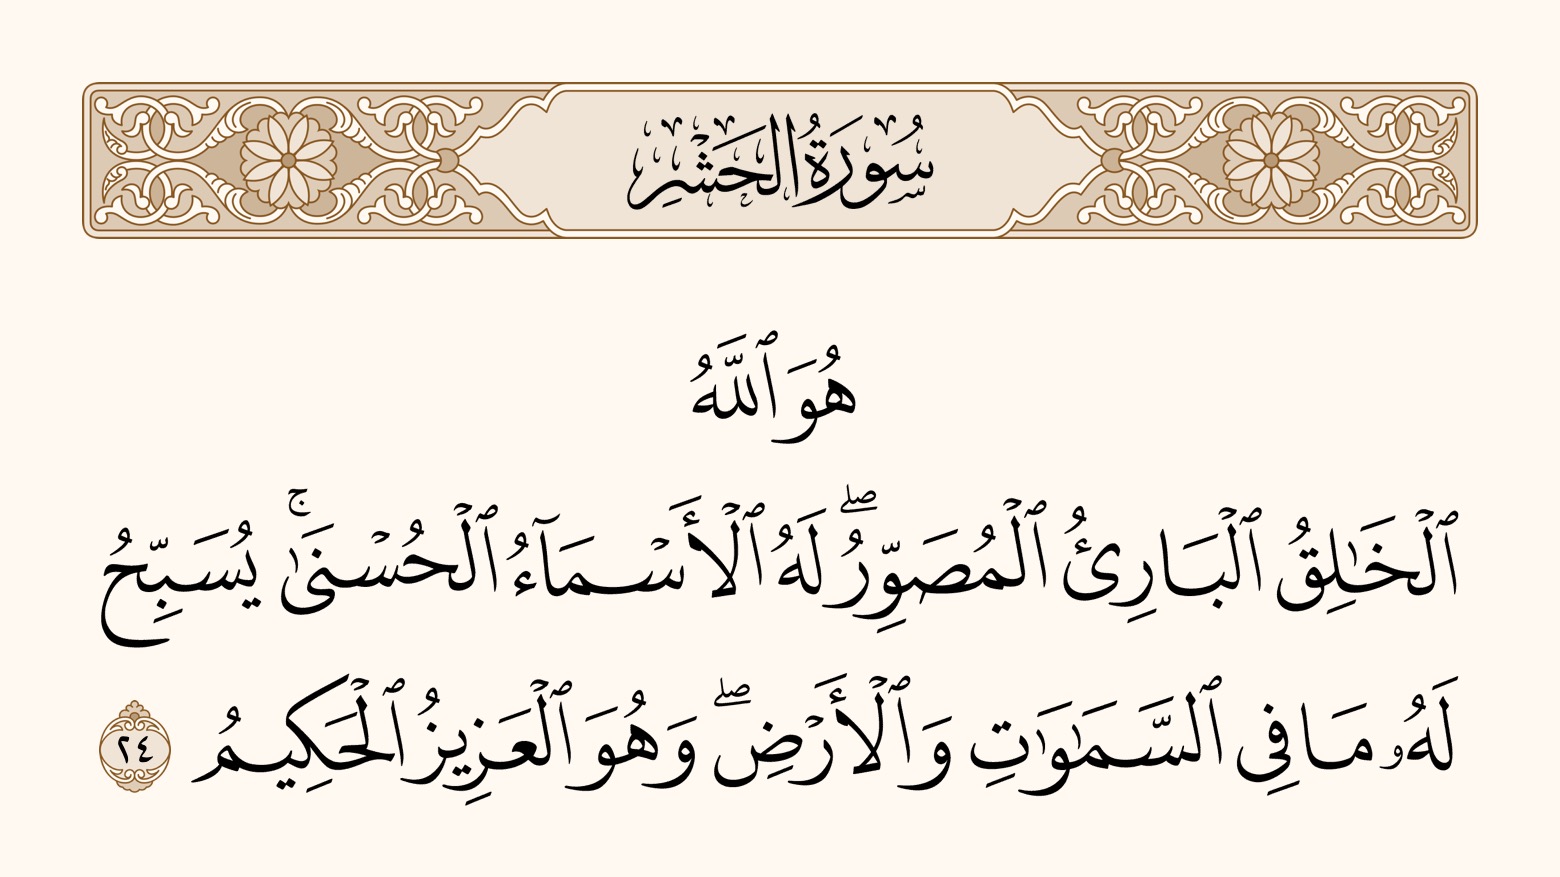 سُورَةُ الحَشْرِ
هُوَ ٱللَّهُ
ٱلْخَٰلِقُ ٱلْبَارِئُ ٱلْمُصَوِّرُۖ لَهُ ٱلْأَسْمَآءُ ٱلْحُسْنَىٰۚ يُسَبِّحُ
لَهُۥ مَا فِي ٱلسَّمَٰوَٰتِ وَٱلْأَرْضِۖ وَهُوَ ٱلْعَزِيزُ ٱلْحَكِيمُ ٢٤